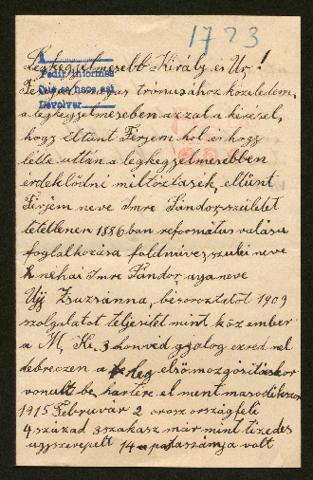 1723
Legkegyelmesebb Király és Úr!
Pedir informes
Dío se hace así
Devolver
Felséged magas trónusához közeledem
a legkegyelmesebben azzal a kéréssel,
hogy eltünt Férjem hol és hogy
léte után a legkegyelmesebben
érdeklődni méltóztassék, eltünt
Férjem neve Imre Sándor, született
tetétlenen 1886ban református vallásu
foglalkozása földmüves, szülei neve
néhai Imre Sándor anyaneve
Ujj Zsuzsánna, bésoroztatot 1909
szolgálatot teljesitet mint köz ember
a M. Kir. 3 honvéd gyalog ezred nél
debreczen a első mozgósitáskor
vonult be, hartérre el ment másodikszor
1915 Februvár 2 orosz ország felé
9 század 3 szakasz már mint tizedes
ugy szerepelt 14-a pótaszámja volt